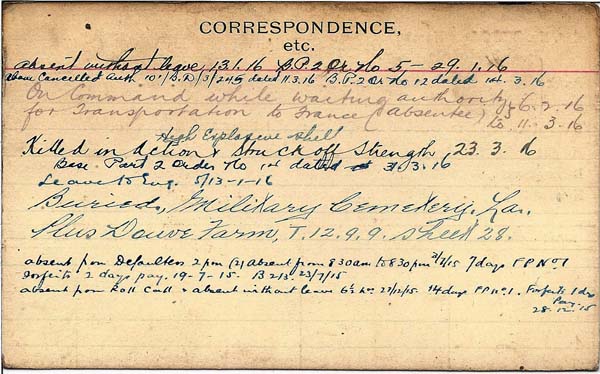 CORRESPONDENCE,
etc.
absent without leave, 13.1.16 B.P.2 Or No 5 - 29.1.16
above Cancelled Auth 10'/B.D/3/245 dated 11.3.16 B.P.2 Or No 12 dated 1st. 3.16
On Command while waiting authority 6.2.16
for Transportation to France (absentee) to 11.3.16
High Explosive shell
Killed in Action & Struck off Strength, 23.3.16
Base Part 2 Order No 1st dated 31.3.16
Leave to Eng. 5/13-1-16
Buried, Military Cemetery, La.
Plus Douve Farm, T.12.9.9. Sheet 28.
absent from Defaulters 2 pm (2) absent from 8.30am to 8.30pm 7 days F P No 1
forfeits 2 days pay. 19-7-15. B213 23/7/15
absent from Roll Call & absent without leave 6½ hrs. 27/12/15. 14 days F P No 1. Forfeits 1 day
Pay.
28.12.15